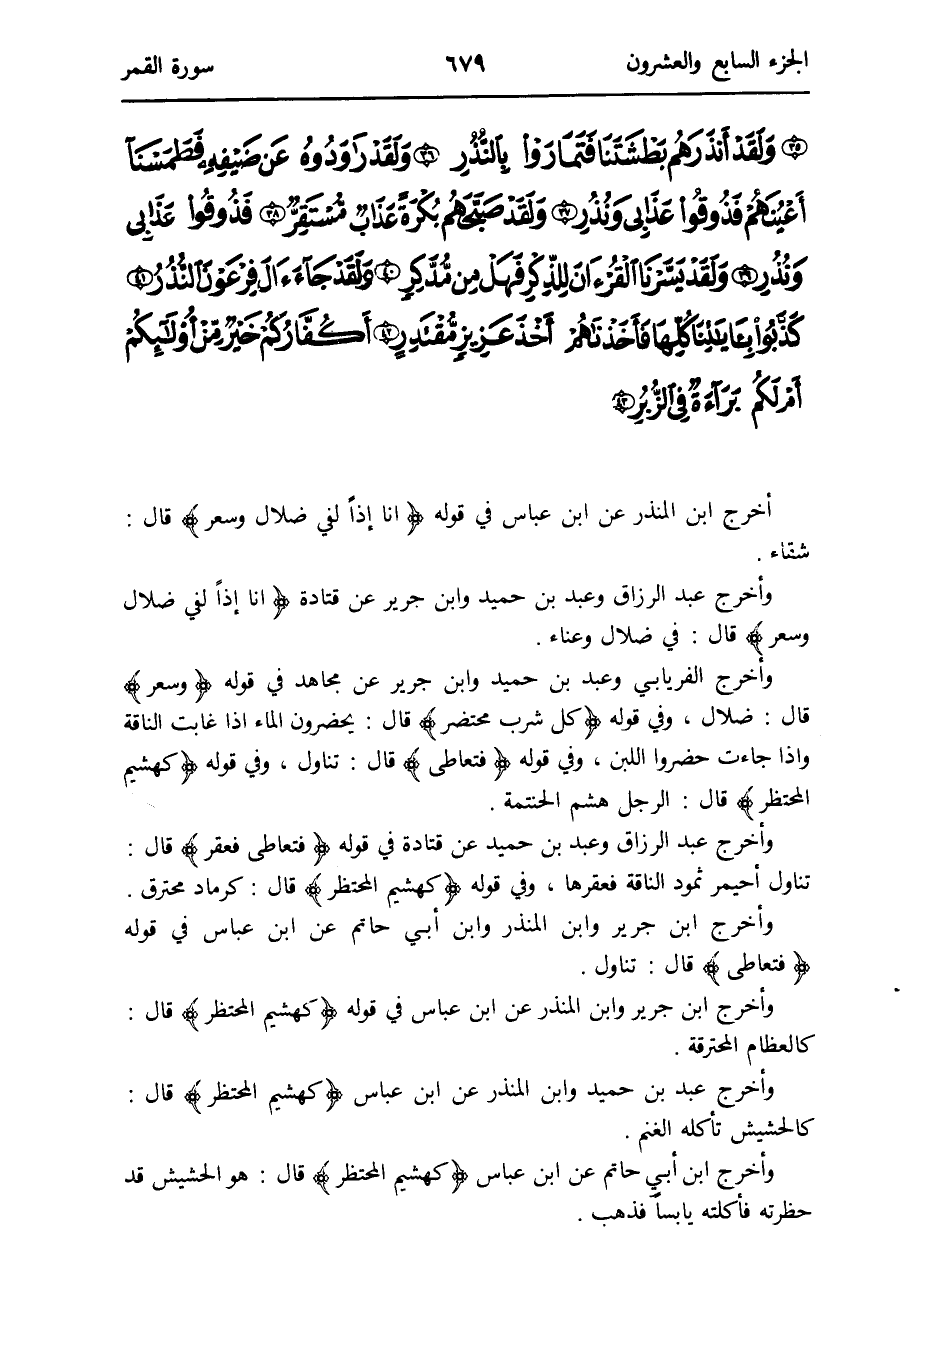 الجزء السابع والعشرون ٦٧٩ سورة القمر
﴿٣٥﴾ وَلَقَدْ أَنذَرَهُم بَطْشَتَنَا فَتَمَارَوْا۟ بِٱلنُّذُرِ ﴿٣٦﴾ وَلَقَدْ رَٰوَدُوهُ عَن ضَيْفِهِۦ فَطَمَسْنَآ
أَعْيُنَهُمْ فَذُوقُوا۟ عَذَابِى وَنُذُرِ ﴿٣٧﴾ وَلَقَدْ صَبَّحَهُم بُكْرَةً عَذَابٌ مُّسْتَقِرٌّ ﴿٣٨﴾ فَذُوقُوا۟ عَذَابِى
وَنُذُرِ ﴿٣٩﴾ وَلَقَدْ يَسَّرْنَا ٱلْقُرْءَانَ لِلذِّكْرِ فَهَلْ مِن مُّدَّكِرٍ ﴿٤٠﴾ وَلَقَدْ جَآءَ ءَالَ فِرْعَوْنَ ٱلنُّذُرُ ﴿٤١﴾
كَذَّبُوا۟ بِـَٔايَٰتِنَا كُلِّهَا فَأَخَذْنَٰهُمْ أَخْذَ عَزِيزٍ مُّقْتَدِرٍ ﴿٤٢﴾ أَكُفَّارُكُمْ خَيْرٌ مِّنْ أُو۟لَٰٓئِكُمْ
أَمْ لَكُم بَرَآءَةٌ فِى ٱلزُّبُرِ ﴿٤٣﴾
أخرج ابن المنذر عن ابن عباس في قوله ﴿ انا إذاً لفي ضلال وسعر ﴾ قال :
شقاء .
وأخرج عبد الرزاق وعبد بن حميد وابن جرير عن قتادة ﴿ انا إذاً لفي ضلال
وسعر ﴾ قال : في ضلال وعناء .
وأخرج الفريابي وعبد بن حميد وابن جرير عن مجاهد في قوله ﴿ وسعر ﴾
قال : ضلال ، وفي قوله ﴿كل شرب محتضر ﴾ قال : يحضرون الماء اذا غابت الناقة
واذا جاءت حضروا اللبن ، وفي قوله ﴿ فتعاطى ﴾ قال : تناول ، وفي قوله ﴿كهشيم
المحتظر ﴾ قال : الرجل هشم الحنتمة .
وأخرج عبد الرزاق وعبد بن حميد عن قتادة في قوله ﴿ فتعاطى فعقر ﴾ قال :
تناول أحيمر ثمود الناقة فعقرها ، وفي قوله ﴿كهشيم المحتظر ﴾ قال : كرماد محترق .
وأخرج ابن جرير وابن المنذر وابن أبي حاتم عن ابن عباس في قوله
﴿ فتعاطى ﴾ قال : تناول .
وأخرج ابن جرير وابن المنذر عن ابن عباس في قوله ﴿كهشيم المحتظر ﴾ قال :
كالعظام المحترقة .
وأخرج عبد بن حميد وابن المنذر عن ابن عباس ﴿كهشيم المحتظر ﴾ قال :
كالحشيش تأكله الغنم .
وأخرج ابن أبي حاتم عن ابن عباس ﴿كهشيم المحتظر ﴾ قال : هو الحشيش قد
حظرته فأكلته يابساً فذهب .